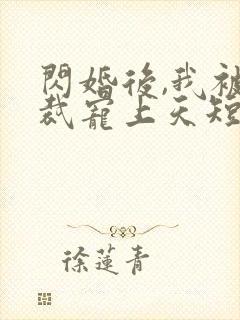 閃婚後,我被
裁寵上天短
徐蓮青